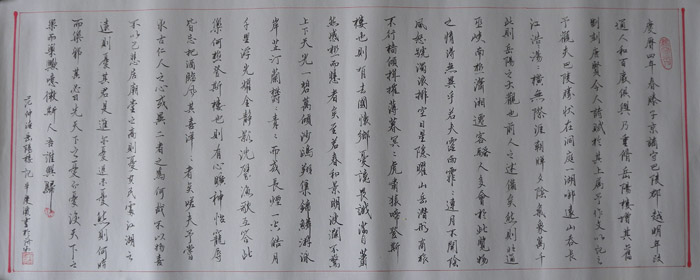 慶曆四年春滕子京謫守巴陵郡越明年政
通人和百廢俱興乃重脩岳陽樓增其舊
制刻唐賢今人詩賦於其上屬予作文以記之
予觀夫巴陵勝狀在洞庭一湖啣遠山吞長
江浩浩湯湯橫無際涯朝暉夕陰氣象萬千
此則岳陽之大觀也前人之述備矣然則北通
巫峽南極瀟湘遷客騷人多會於此覽物
之情得無異乎若夫霪雨霏霏連月不開陰
風怒號濁浪排空日星隱曜山岳潛形商旅
不行檣傾楫摧薄暮冥冥虎嘯猿啼登斯
樓也則有去國懷鄉憂讒畏譏滿目蕭
然感極而悲者矣至若春和景明波瀾不驚
上下天光一碧萬頃沙鷗翔集錦鱗游泳
岸芷汀蘭鬱鬱青青而或長煙一空皓月
千里浮光耀金靜影沉璧漁歌互答此
樂何極登斯樓也則有心曠神怡寵辱
皆忘把酒臨風其喜洋洋者矣嗟夫予嘗
求古仁人之心或異二者之為何哉不以物喜
不以己悲居廟堂之高則憂其民處江湖之
遠則憂其君是進亦憂退亦憂然則何時
而樂耶其必曰先天下之憂而憂後天下之
樂而樂歟噫微斯人吾誰與歸
范仲淹岳陽樓記